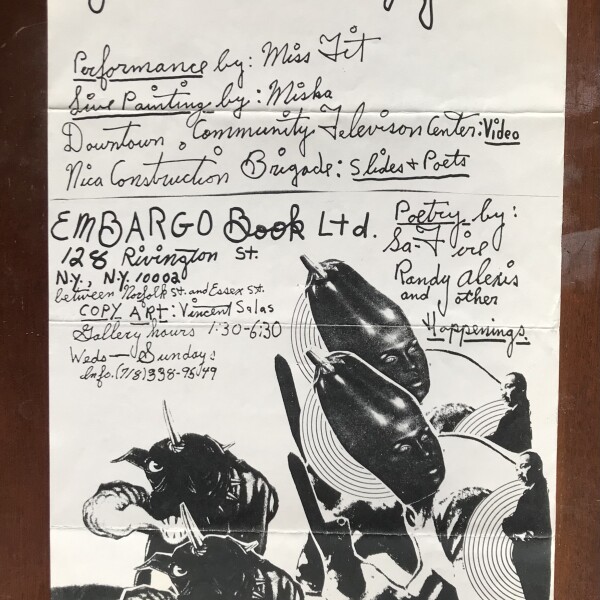 Performance by: Miss Fit
Live Painting by: Miska
Downtown Community Televison Center: Video
Nica Construction Brigade: Slides + Poets
EMBARGO Book Ltd.
128 Rivington St.
N.Y., N.Y. 10002
between Norfolk St. and Essex St.
COPY ART: Vincent Salas
Gallery hours 1:30-6:30
Weds — Sundays
Info. (718) 338-9549
Poetry by:
Sa-Fire
Randy Alexis
and other
Happenings.